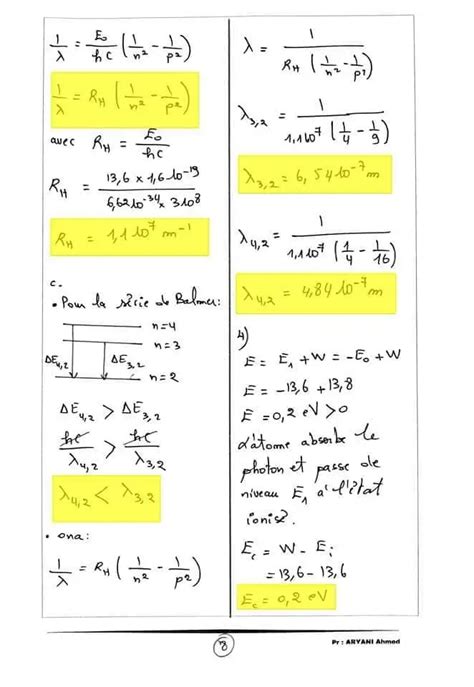 1/λ = E₀/hc (1/n² - 1/p²)
1/λ = R_H (1/n² - 1/p²)
avec R_H = E₀/hc
R_H = 13,6 x 1,6 10⁻¹⁹ / 6,62 10⁻³⁴ x 3 10⁸
R_H = 1,1 10⁷ m⁻¹
c.
• Pour la série de Balmer:
n=4
n=3
ΔE₄,₂ ΔE₃,₂
n=2
ΔE₄,₂ > ΔE₃,₂
hc/λ₄,₂ > hc/λ₃,₂
λ₄,₂ < λ₃,₂
• ona:
1/λ = R_H (1/n² - 1/p²)
λ = 1 / R_H (1/n² - 1/p²)
λ₃,₂ = 1 / 1,1 10⁷ (1/4 - 1/9)
λ₃,₂ = 6,54 10⁻⁷ m
λ₄,₂ = 1 / 1,1 10⁷ (1/4 - 1/16)
λ₄,₂ = 4,84 10⁻⁷ m
4)
E = E₁ + W = -E₀ + W
E = -13,6 + 13,8
E = 0,2 eV > 0
L'atome absorbe le
photon et passe de
niveau E₁ à l'état
ionisé.
E_c = W - E_i
= 13,6 - 13,6
E_c = 0,2 eV
8
Pr : ARYANI Ahmed